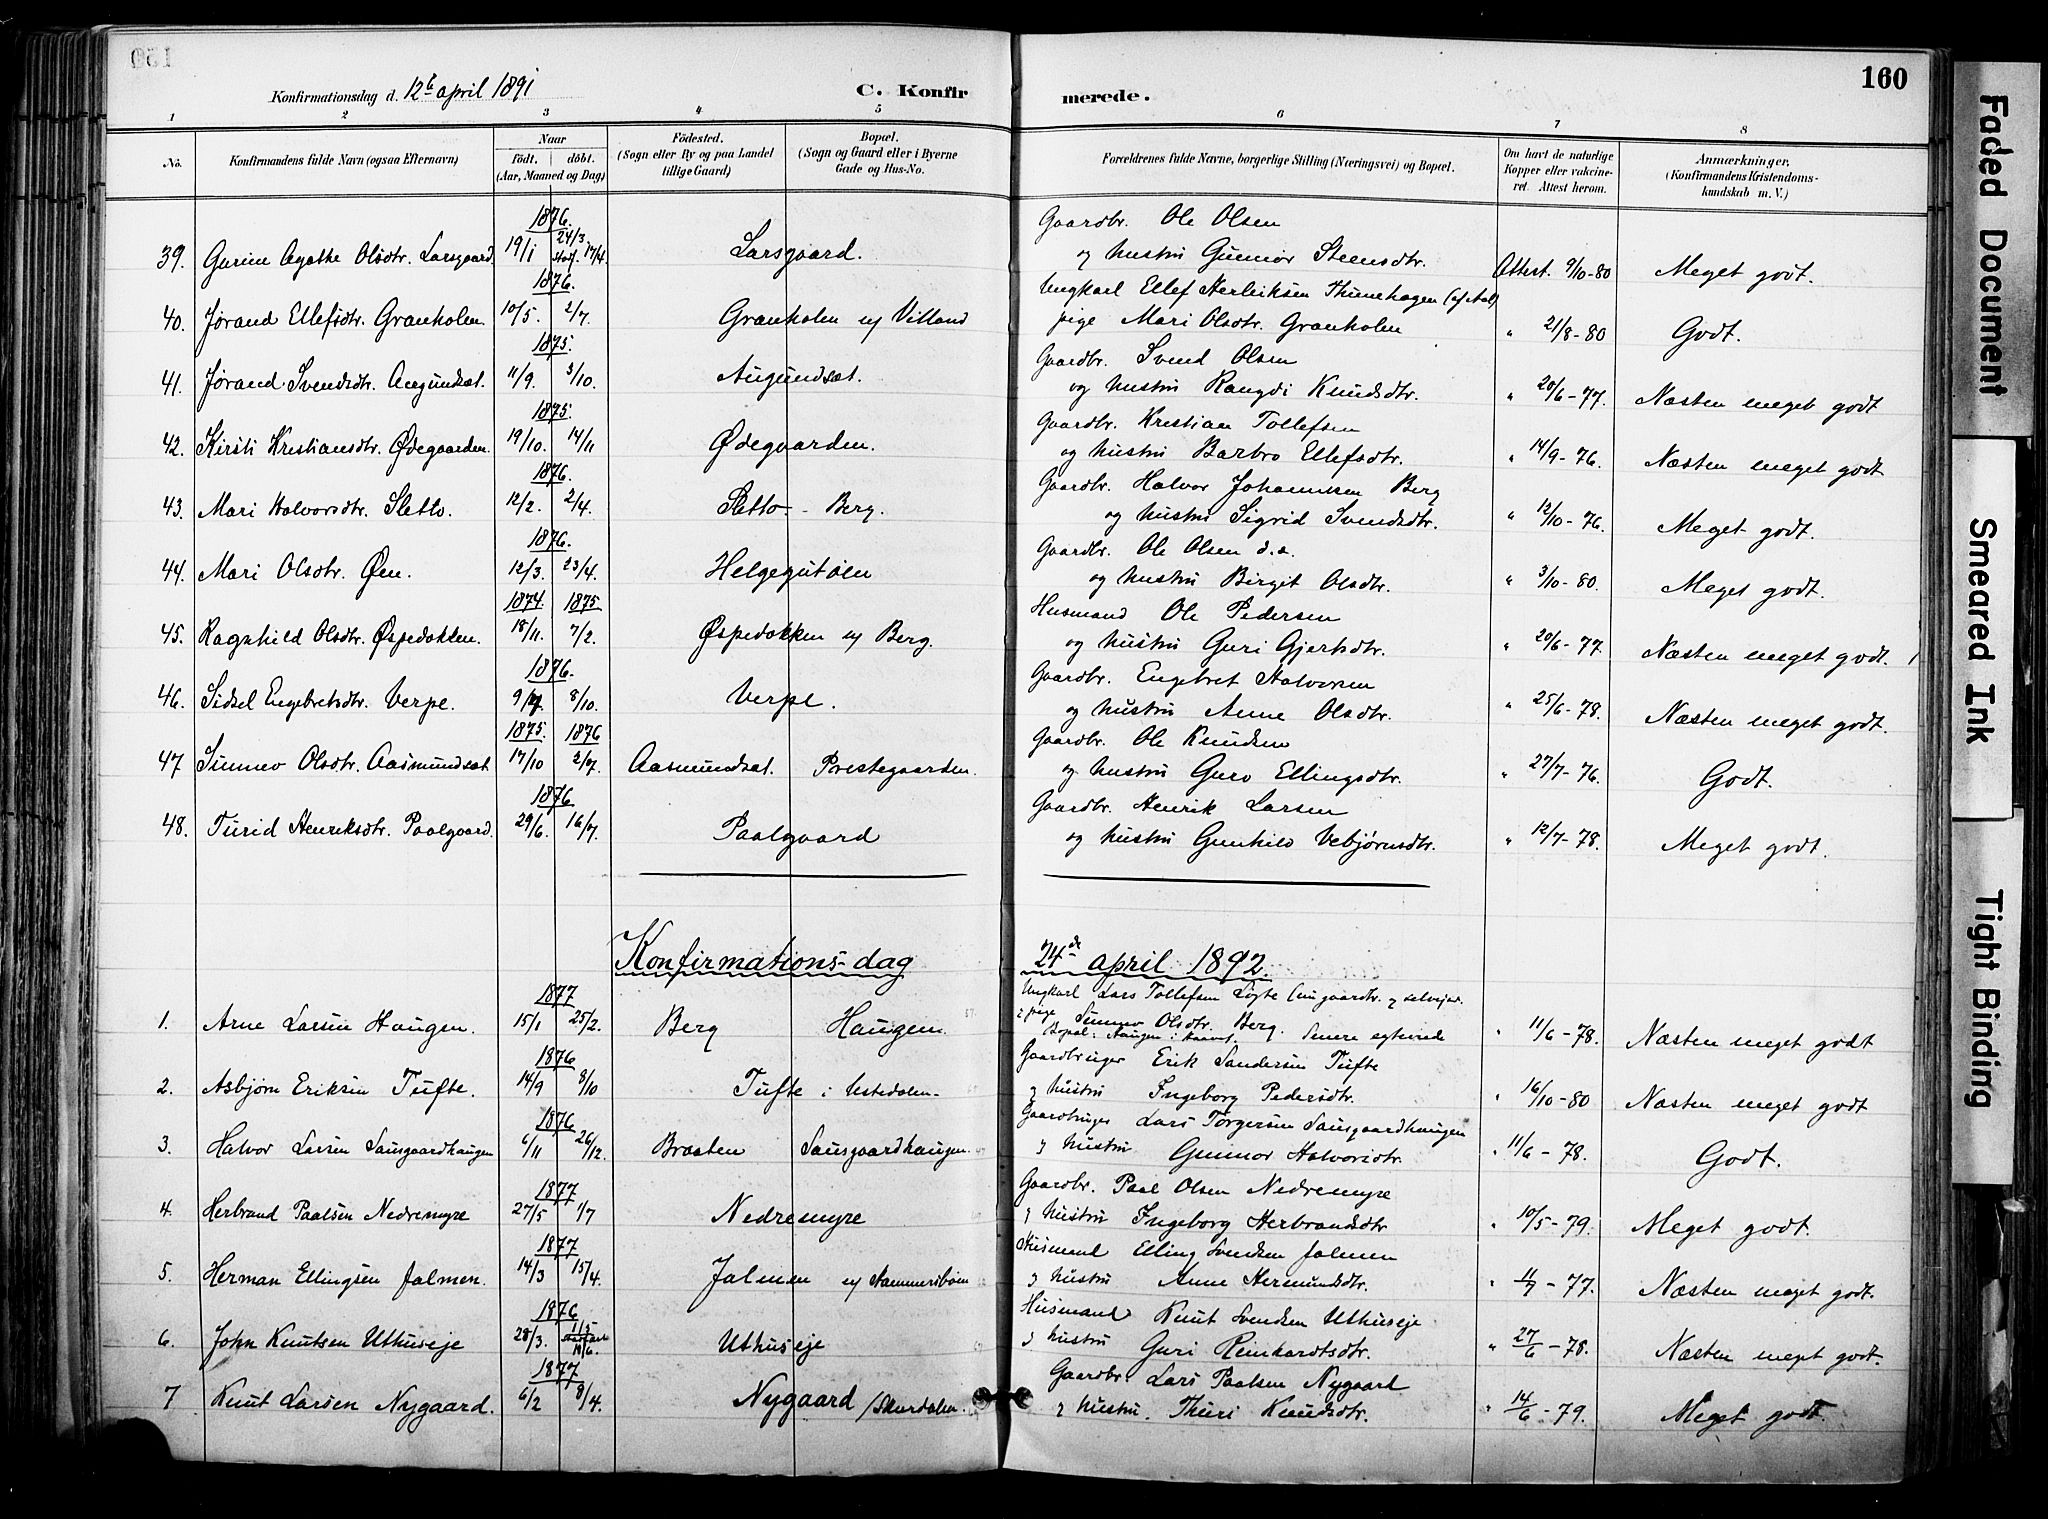 160
Konfirmationsdag d. 12te april 1891
C. Konfir
merede.
1 2 3 4 5 6 7 8
No. Konfirmandens fulde Navn (ogsaa Efternavn) Naar født, døbt. (Aar, Maaned og Dag) Fødested. (Sogn eller By og paa Landet tillige Gaard) Bopæl. (Sogn og Gaard eller i Byerne Gade og Hus-No. Forældrenes fulde Navne, borgerlige Stilling (Næringsvei) og Bopæl. Om havt de naturlige Kopper eller vakcineret. Attest herom. Anmærkninger. (Konfirmandens Kristendomskundskab m. V.)
1876 Gaardbr. Ole Olsen
39. Gurine Agathe Olsdtr. Larsgaard 19/1 24/3 stadf. 17/4 Larsgaard. og hustru Gunnor Steensdtr. Attest. 9/10-80 Meget godt.
1876. Ungkarl Ellef Herleiksen Thunehagen (af Aal)
40. Jørand Ellefsdtr. Granholen. 10/5. 2/7. Granholen u/ Villand pige Mari Olsdtr. Granholen " 21/8-80 Godt.
1875. Gaardbr. Svend Olsen
41. Jørand Svendsdtr. Augundsæt. 11/9. 3/10. Augundsæt. og hustru Rangdi Knudsdtr. " 20/6-77. Næsten meget godt
1875. Gaardbr. Kristian Tollefsen
42. Kirsti Kristiansdtr. Ødegaarden. 19/10. 14/11 Ødegaarden. og hustru Barbro Ellefsdtr. " 14/9-76. Næsten meget godt
1876. Gaardbr. Halvor Johannesen Berg
43. Mari Halvorsdtr. Sletto. 12/2. 2/4. Sletto - Berg. og hustru Sigrid Svendsdtr. " 12/10-76. Meget godt.
1876. Gaardbr. Ole Olsen d.e.
44. Mari Olsdtr. Øen. 12/3. 23/4. Helgegutøen og hustru Birgit Olsdtr. " 3/10-80. Meget godt.
1874. 1875 Husmand Ole Pedersen
45. Ragnhild Olsdtr. Øspedokken. 18/11. 7/2. Øspedokken u/ Berg. og hustru Guri Gjertsdtr. " 20/6-77. Næsten meget godt.
1876. Gaardbr. Engebret Halvorsen
46. Sidsel Engebretsdtr. Verpe. 9/ 8/10. Verpe. og hustru Anne Olsdtr. " 25/6-78. Næsten meget godt.
1875. 1876 Gaardbr. Ole Knudsen
47 Sunnev Olsdtr. Aasmundsæt 17/10 2/7. Aasmundsæt. Prestegaarden. og hustru Guro Ellingsdtr. " 27/7-76. Godt.
1876 Gaardbr. Henrik Larsen
48. Turid Henriksdtr. Paalgaard. 29/6. 16/7. Paalgaard og hustru Gunhild Vebjørnsdtr. " 12/7-78. Meget godt.
Konfirmations-dag 24de april 1892.
1877 Ungkarl Lars Tollefsen Løgte
1. Arne Larsen Haugen. 15/1 25/2. Berg Haugen. pige Sunnev Olsdtr. Berg. " 11/6-78. Næsten meget godt
Bopæl: Haugen i Senere egteviede
1876 Gaardbruger Erik Sandersen Tufte
2. Asbjørn Eriksen Tufte. 14/9 8/10 Tufte i Ustedalen. og hustru Ingeborg Pedersdtr. " 16/10-80 Næsten meget godt
1876 Gaardbruger Lars Torgersen Sausgaardhaugen
3. Halvor Larsen Sausgaardhaugen 6/11 26/12. Braaten Sausgaardhaugen. og hustru Gunnor Halvorsdtr. " 11/6-78. Godt.
1877 Gaardbr. Paal Olsen Nedremyre
4. Herbrand Paalsen Nedremyre 27/5 1/7 Nedremyre og hustru Ingeborg Herbrandsdtr " 10/5-79. Meget godt.
1877 Husmand Elling Svendsen Jalmen
5. Herman Ellingsen Jalmen. 14/3 15/4. Jalmen u/ Hammersbøen og hustru Anne Hermundsdtr. " 11/7-77. Næsten meget godt.
1876 Husmand Knut Svendsen Uthuseje
6. John Knutsen Uthuseje 28/3. 11/5 stadfæst 18/6. Uthuseje og hustru Guri Reinhardtsdtr. " 27/6-78. Næsten meget godt.
1877 Gaardbr. Lars Paalsen Nygaard
7 Knut Larsen Nygaard. 6/2 8/4. Nygaard /Skurdalen. og hustru. Thuri Knudsdtr. " 14/6-79. Meget godt.
Faded Document
Smeared Ink
Tight Binding